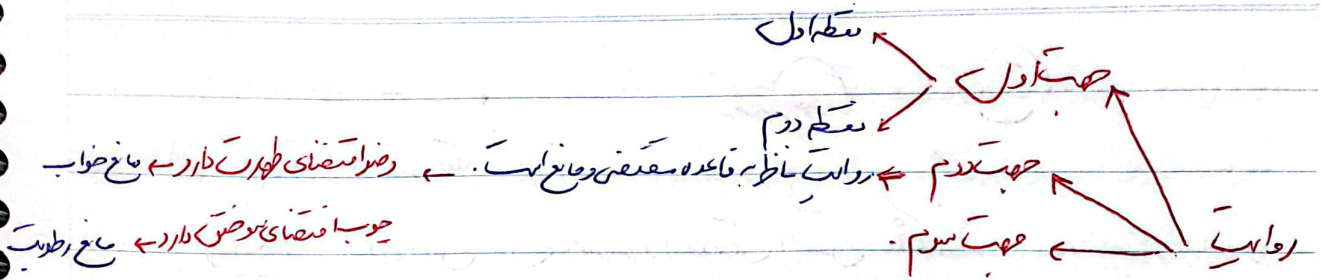 نقطه اول
جهت اول
نقطه دوم
جهت دوم ← روایت ناظر به قاعده مقتضی و مانع است. ← وضو اقتضای طهارت دارد ← مانع خواب
چوب اقتضای سوختن دارد ← مانع رطوبت
روایت ← جهت سوم.